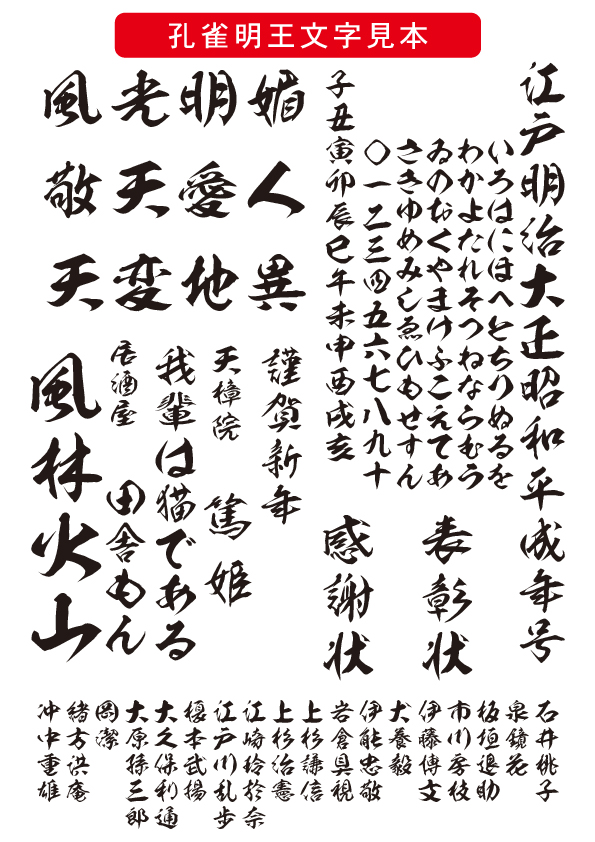 孔雀明王文字見本
江戸明治大正昭和平成年号
いろはにほへとちりぬるを
わかよたれそつねならむう
ゐのおくやまけふこえてあ
さきゆめみしゑひもせすん
〇一二三四五六七八九十
子丑寅卯辰巳午未申酉戌亥
表彰状
感謝状
媚人異
明愛地
光天変
風敬天
謹賀新年
天樟院 篤姫
我輩は猫である
居酒屋 田舎もん
風林火山
石井桃子
泉鏡花
板垣退助
市川房枝
伊藤博文
犬養毅
伊能忠敬
岩倉具視
上杉謙信
上杉治憲
江崎玲於奈
江戸川乱歩
榎本武揚
大久保利通
大原孫三郎
岡潔
緒方洪庵
沖中重雄